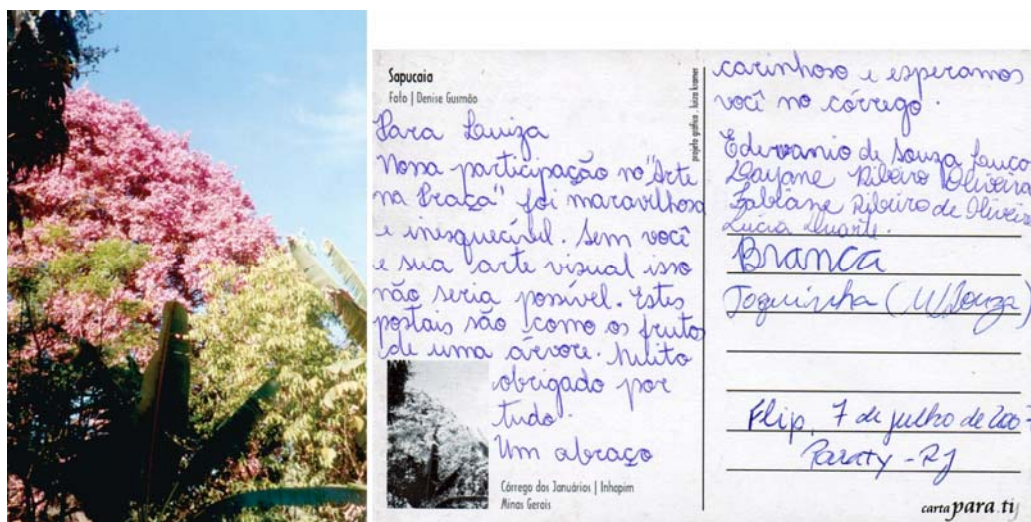 Sapucaia
Foto | Denise Gusmão
projeto gráfico . luiza kramer
Para Luiza
Nossa participação no "Arte
na Praça" foi maravilhosa
e inesquecível. Sem você
e sua arte visual isso
não seria possível. Estes
postais são como os frutos
de uma árvore. Muito
obrigado por
tudo.
Um abraço
Córrego dos Januários | Inhapim
Minas Gerais
carinhoso e esperamos
você no córrego.
Edervanio de Souza
Dayane Ribeiro Oliveira
Fabiane Ribeiro de Oliveira
Lúcia Duarte.
Branca
Toquinha (W/Souza)
Flip, 7 de julho de 2007
Paraty - RJ
carta para ti